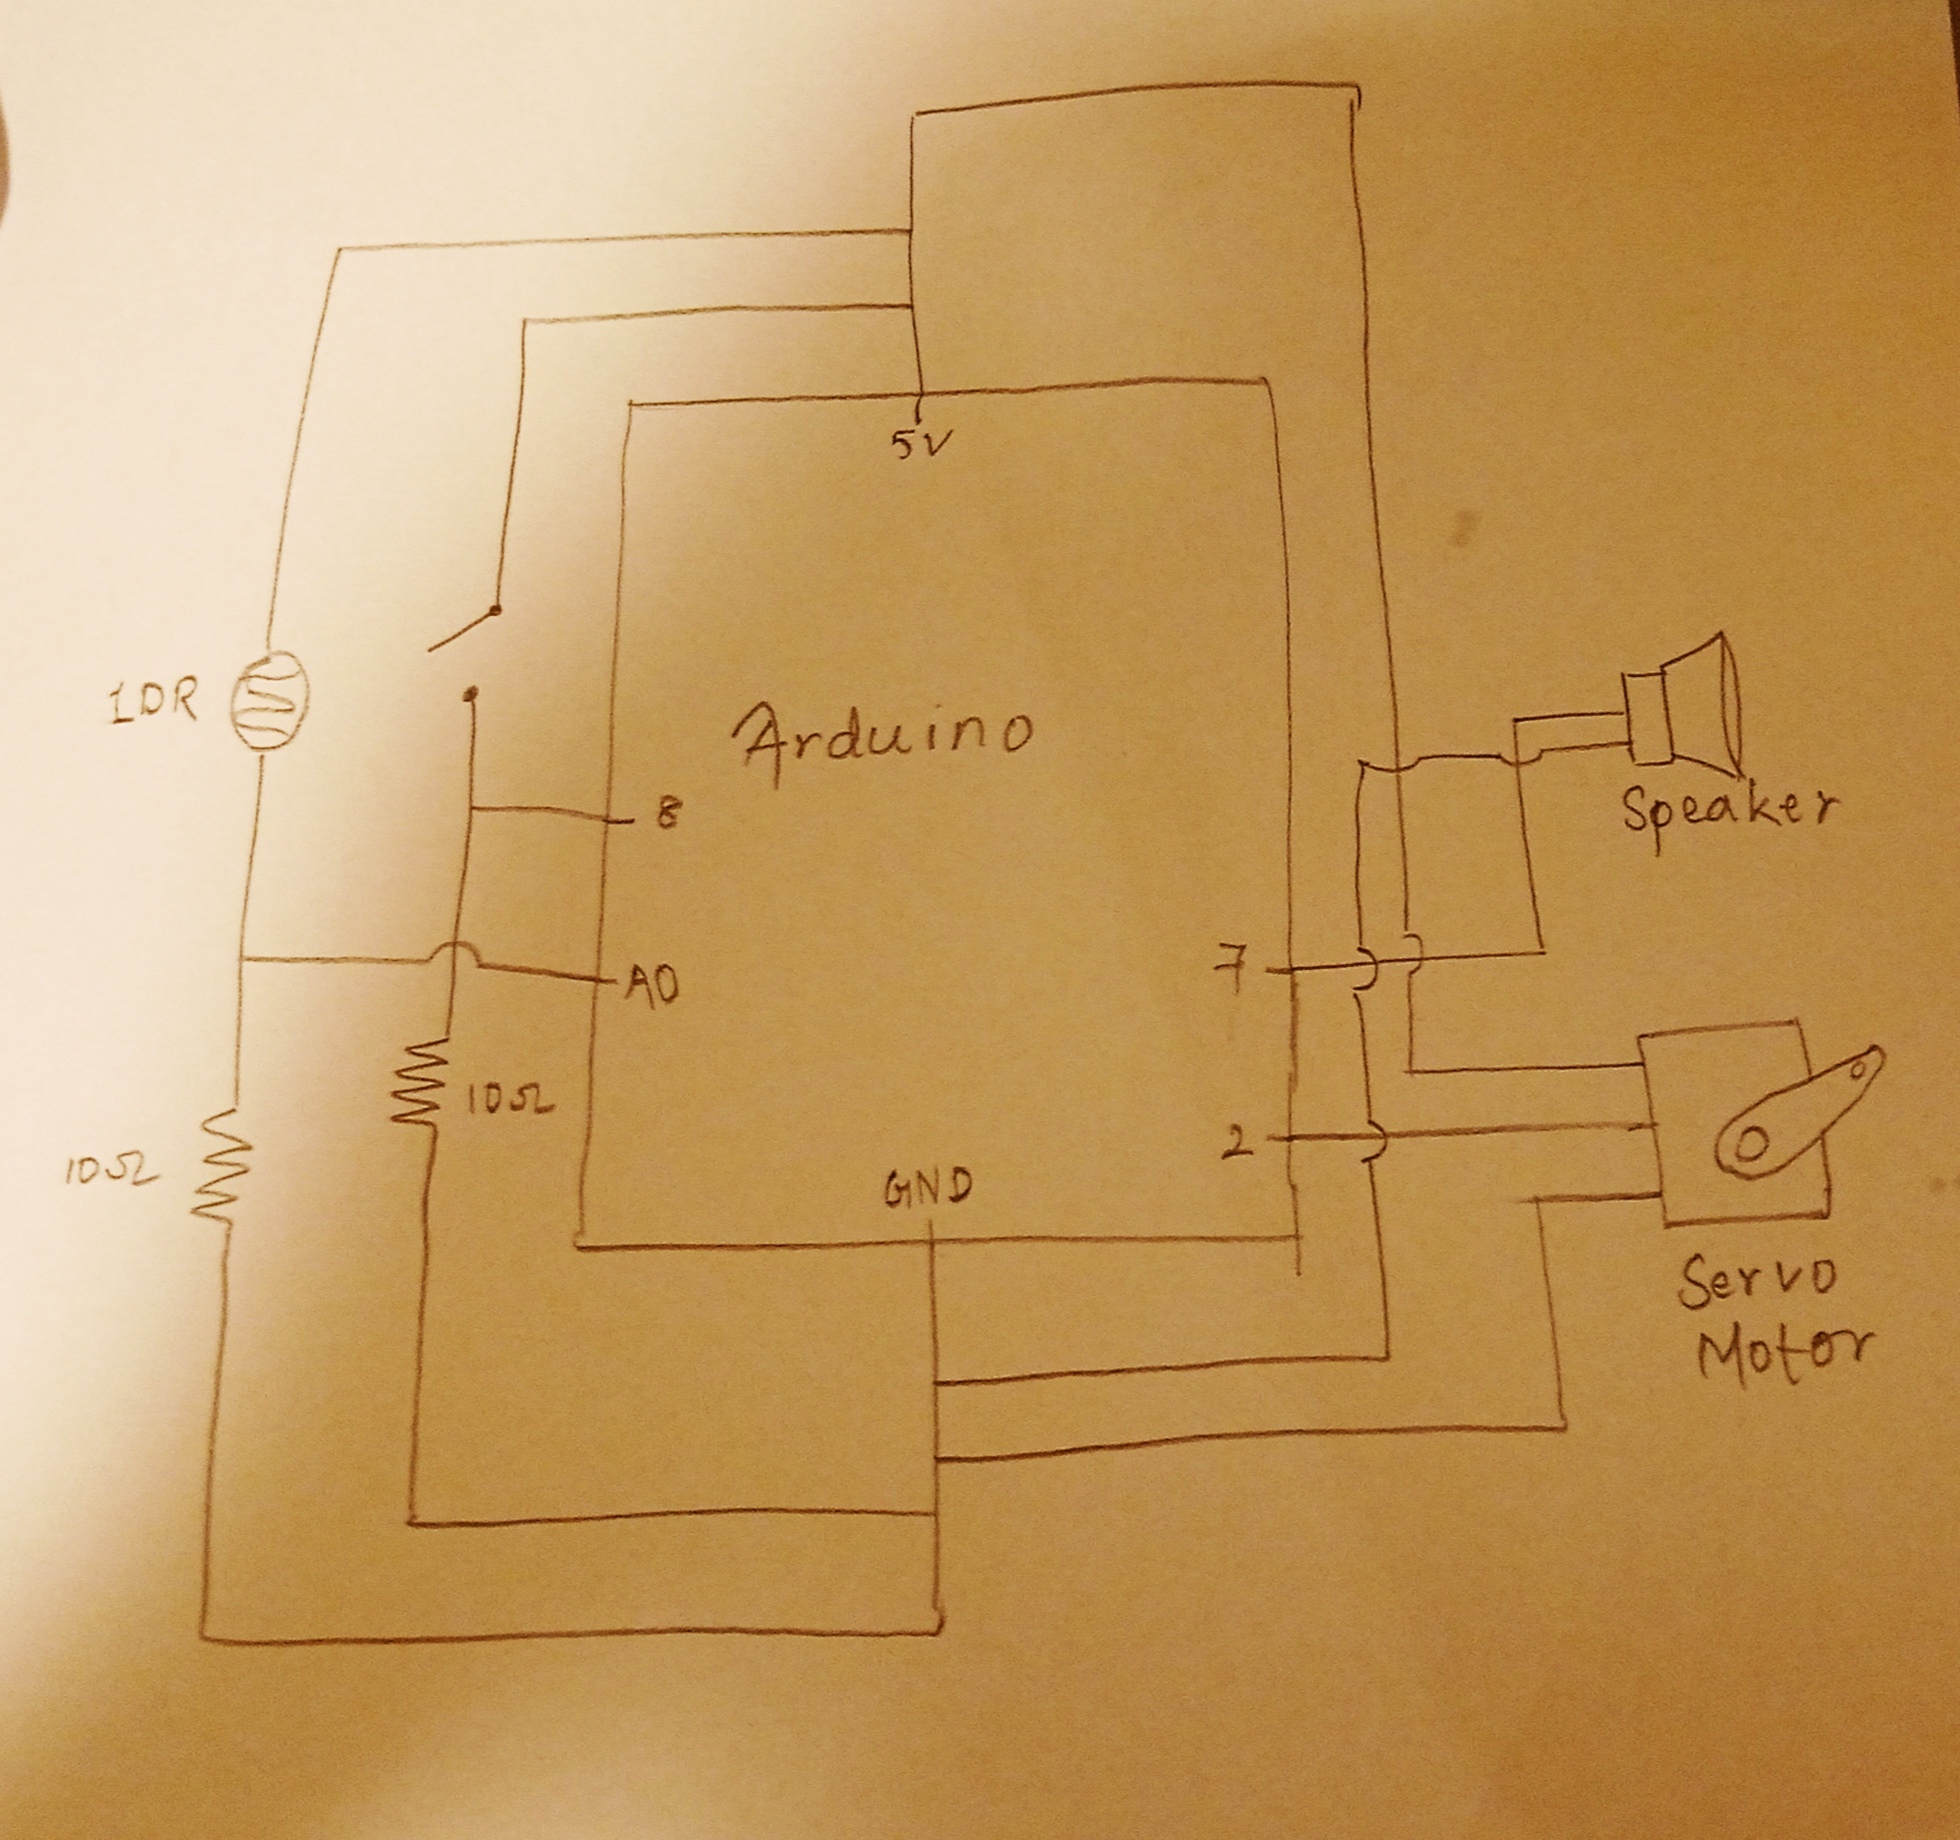 5V
LDR
Arduino
8
Speaker
7
A0
10Ω
2
10Ω
GND
Servo
Motor